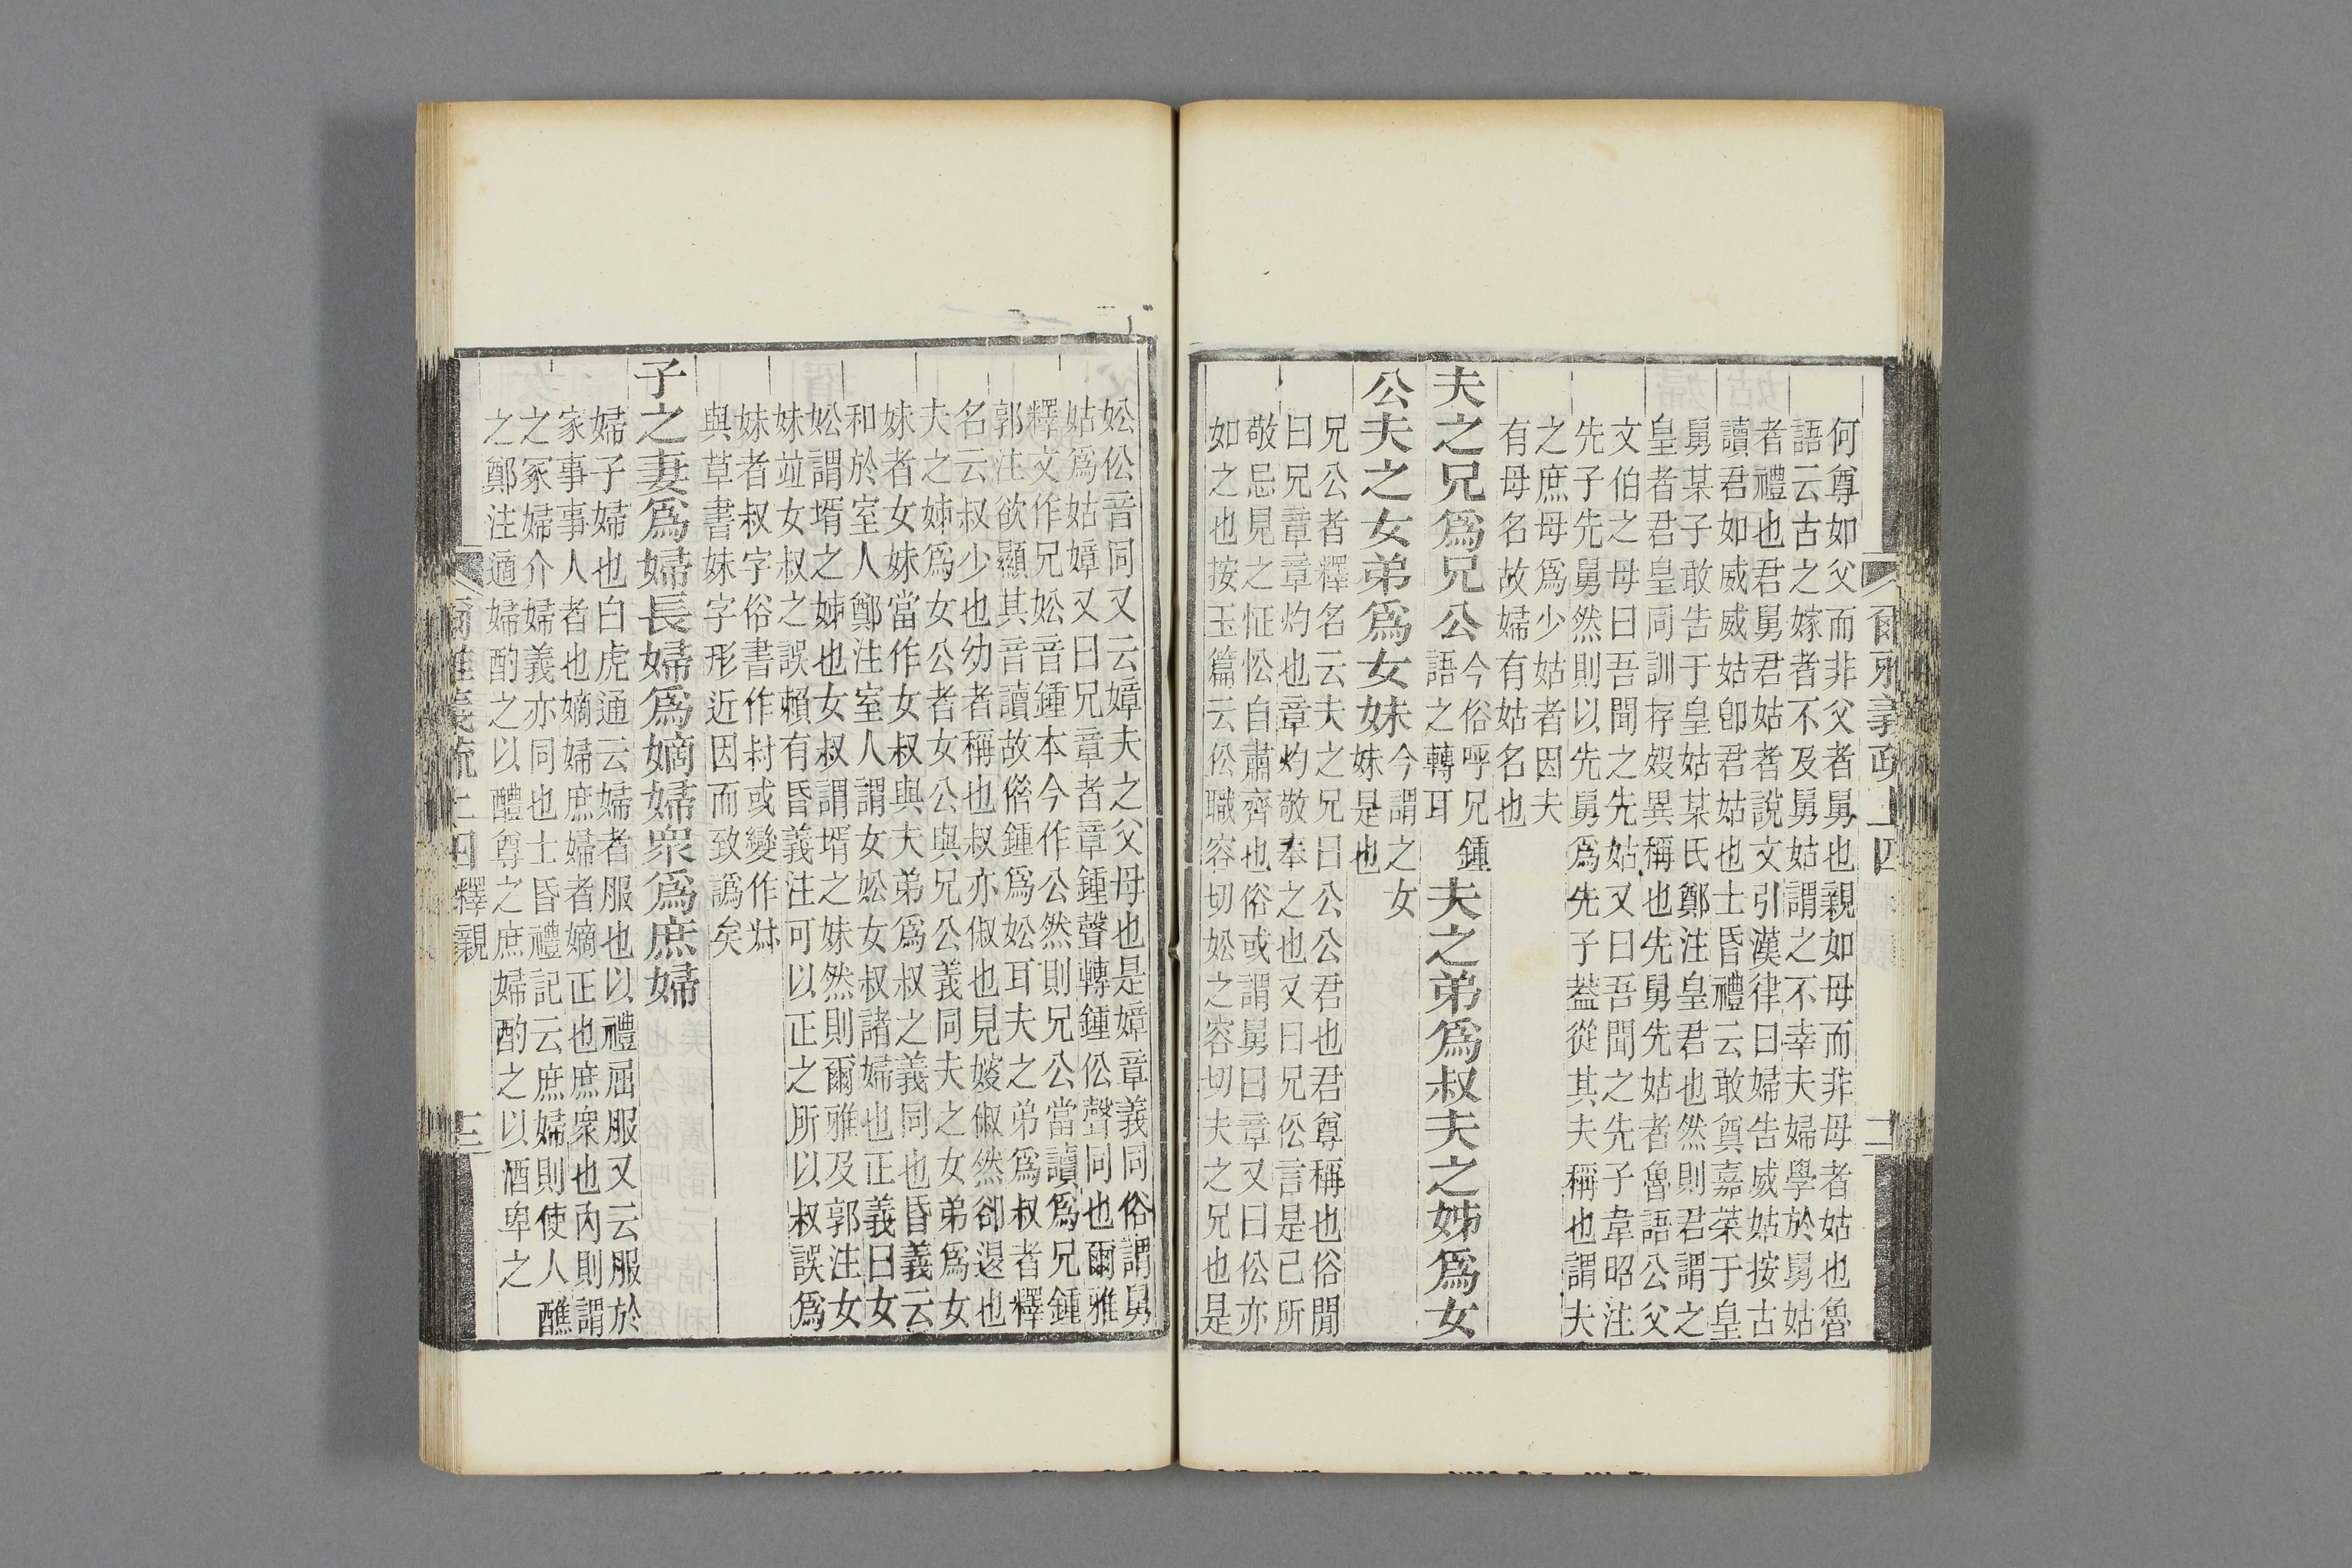 爾雅義疏 上四 二
何尊如父而非父者舅也親如母而非母者姑也魯
語云古之嫁者不及舅姑謂之不幸夫婦學於舅姑
者禮也君舅君姑者說文引漢律曰婦告威姑按古
讀君如威威姑卽君姑也士昏禮云敢奠嘉菜于皇
舅某子敢告于皇姑某氏鄭注皇君也然則君謂之
皇者君皇同訓存歿異稱也先舅先姑者魯語公父
文伯之母曰吾聞之先姑又曰吾聞之先子韋昭注
先子先舅然則以先舅爲先子葢從其夫稱也謂夫
之庶母爲少姑者因夫
有母名故婦有姑名也
夫之兄爲兄公今俗呼兄鍾語之轉耳夫之弟爲叔夫之姊爲女
公夫之女弟爲女妹今謂之女妹是也
兄公者釋名云夫之兄曰公公君也君尊稱也俗閒
曰兄章章灼也章灼敬奉之也又曰兄伀言是己所
敬忌見之怔忪自肅齊也俗或謂舅曰章又曰伀亦
如之也按玉篇云伀職容切妐之容切夫之兄也是
妐伀音同又云嫜夫之父母也是嫜章義同俗謂舅
姑爲姑嫜又曰兄章者章鍾聲轉鍾伀聲同也爾雅
釋文作兄妐音鍾本今作公然則兄公當讀爲兄鍾
郭注欲顯其音讀故偺鍾爲妐耳夫之弟爲叔者釋
名云叔少也幼者稱也叔亦俶也見嫂俶然卻退也
夫之姊爲女公者女公與兄公義同夫之女弟爲女
妹者女妹當作女叔與夫弟爲叔之義同也昏義云
和於室人鄭注室人謂女妐女叔諸婦也正義曰女
妐謂壻之姊也女叔謂壻之妹然則爾雅及郭注女
妹竝女叔之誤賴有昏義注可以正之所以叔誤爲
妹者叔字俗書作或變作
與草書妹字形近因而致譌矣
子之妻爲婦長婦爲嫡婦衆爲庶婦
婦子婦也白虎通云婦者服也以禮屈服又云服於
家事事人者也嫡婦庶婦者嫡正也庶衆也內則謂
之冢婦介婦義亦同也士昏禮記云庶婦則使人醮
之鄭注適婦酌之以醴尊之庶婦酌之以酒卑之
爾雅義疏 上四釋親 三